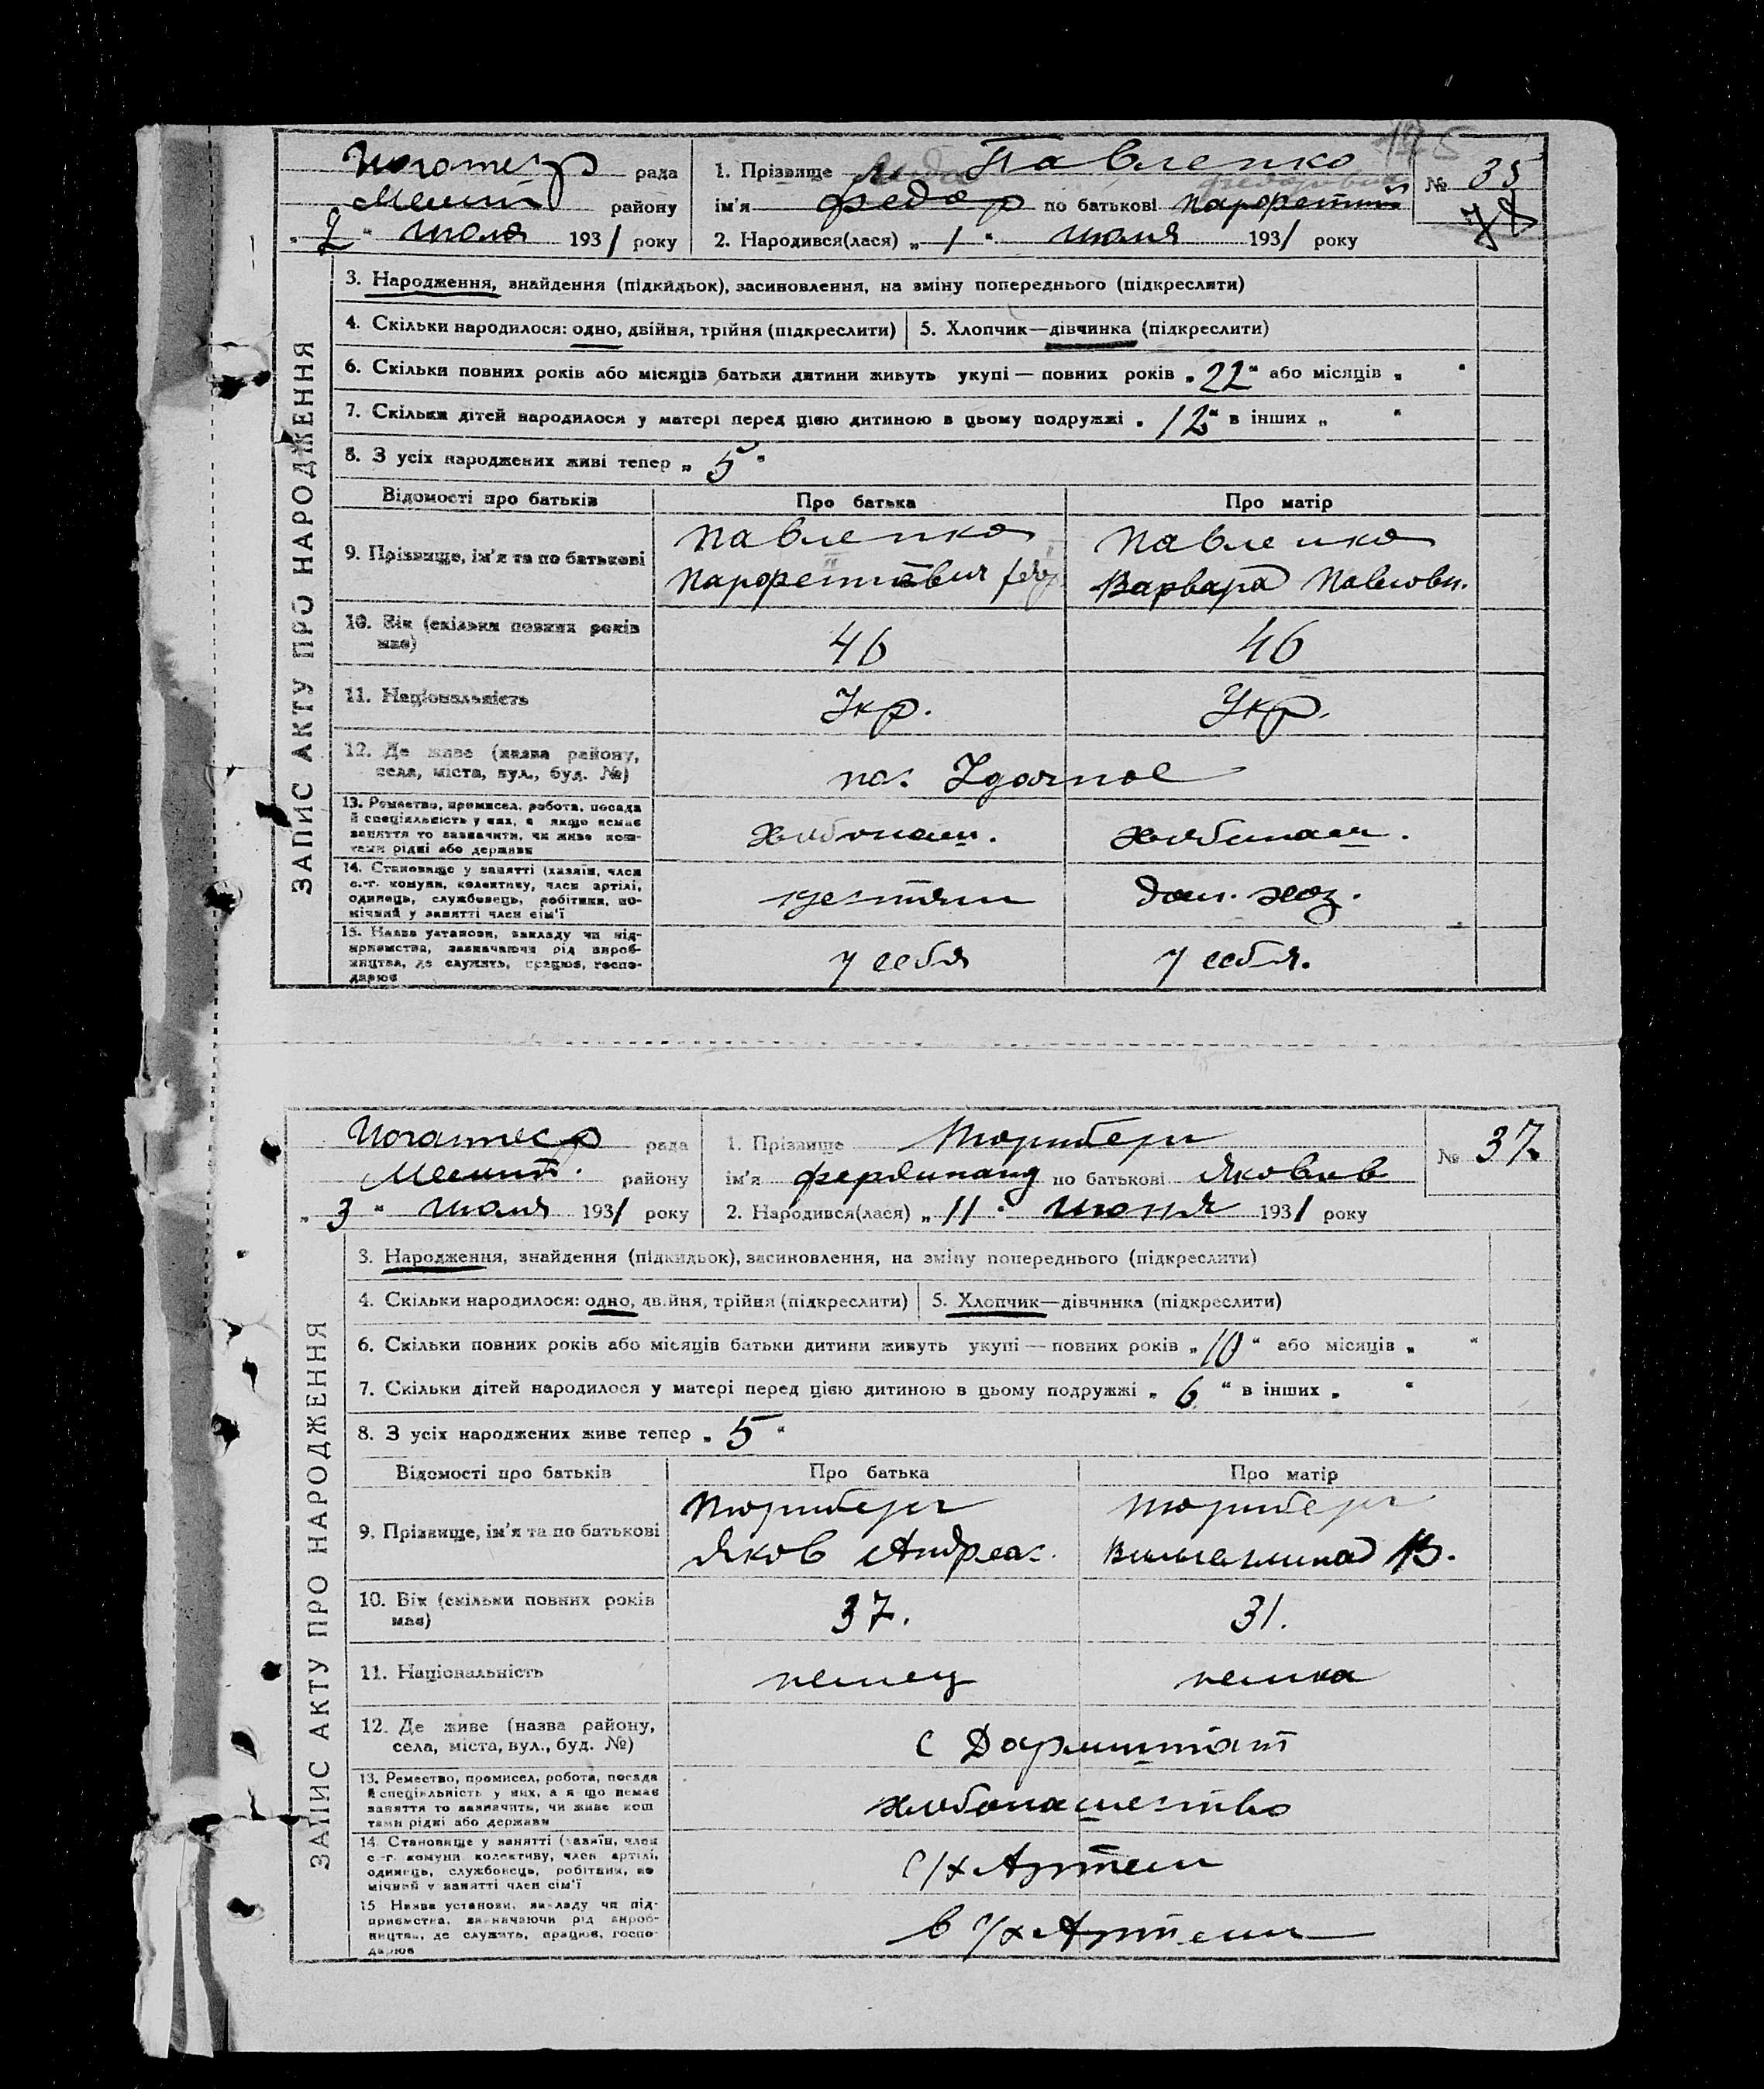 рада
району
„ 2 “ июля 1931 року
1. Прізвище Лида Павленко
ім'я Федор по батькові
2. Народився(лася) „ 1 “ июля 1931 року
№ 35
ЗАПИС АКТУ ПРО НАРОДЖЕННЯ
3. Народження, знайдення (підкидьок), засиновлення, на зміну попереднього (підкреслити)
4. Скільки народилося: одно, двійня, трійня (підкреслити)
5. Хлопчик—дівчинка (підкреслити)
6. Скільки повних років або місяців батьки дитини живуть укупі — повних років „ 22 “ або місяців „ “
7. Скільки дітей народилося у матері перед цією дитиною в цьому подружжі „ 12 “ в інших „ “
8. З усіх народжених живі тепер „ 5 “
Відомості про батьків
Про батька
Про матір
9. Прізвище, ім'я та по батькові
Павленко
Павленко
Варвара Павловн.
10. Вік (скільки повних років
має)
46
46
11. Національність
Укр.
Укр.
12. Де живе (назва району,
села, міста, вул., буд. №)
пос. Удачное
13. Ремество, промисел, робота, посада
й спеціяльність у них, а якщо немає
заняття то зазначити, чи живе кош-
тами рідні або держави
хлебопаш.
хлебопаш.
14. Становище у занятті (хазяїн, член
с.-г. комуни, колективу, член артілі,
одинець, службовець, робітник, по-
мічний у занятті член сім'ї
дом. хоз.
15. Назва установи, закладу чи під-
приємства, зазначаючи рід вироб-
ництва, де служить, працює, госпо-
дарює
у себя
у себя.
рада
Мелит. району
„ 3 “ июля 1931 року
1. Прізвище Торнберг
ім'я Фердинанд по батькові Яковлев
2. Народився(лася) „ 11 “ июня 1931 року
№ 37
ЗАПИС АКТУ ПРО НАРОДЖЕННЯ
3. Народження, знайдення (підкидьок), засиновлення, на зміну попереднього (підкреслити)
4. Скільки народилося: одно, двійня, трійня (підкреслити)
5. Хлопчик—дівчинка (підкреслити)
6. Скільки повних років або місяців батьки дитини живуть укупі — повних років „ 10 “ або місяців „ “
7. Скільки дітей народилося у матері перед цією дитиною в цьому подружжі „ 6 “ в інших „ “
8. З усіх народжених живе тепер „ 5 “
Відомості про батьків
Про батька
Про матір
9. Прізвище, ім'я та по батькові
Торнберг
Яков Андреас.
Торнберг
Вильгелмина В.
10. Вік (скільки повних років
має)
37.
31.
11. Національність
немец
немка
12. Де живе (назва району,
села, міста, вул., буд. №)
с Дармштат
13. Ремество, промисел, робота, посада
й спеціяльність у них, а якщо немає
заняття то зазначить, чи живе кош
тами рідні або держави
хлебопашество
14. Становище у занятті (хазяїн, член
с.-г. комуни колективу, член артілі,
одинець, службовець, робітник, по
мічний у занятті член сім'ї
с/х Артели
15 Назва установи, закладу чи під-
приємства, зазначаючи рід вироб-
ництва, де служить, працює, госпо-
дарює
в с/х Артели